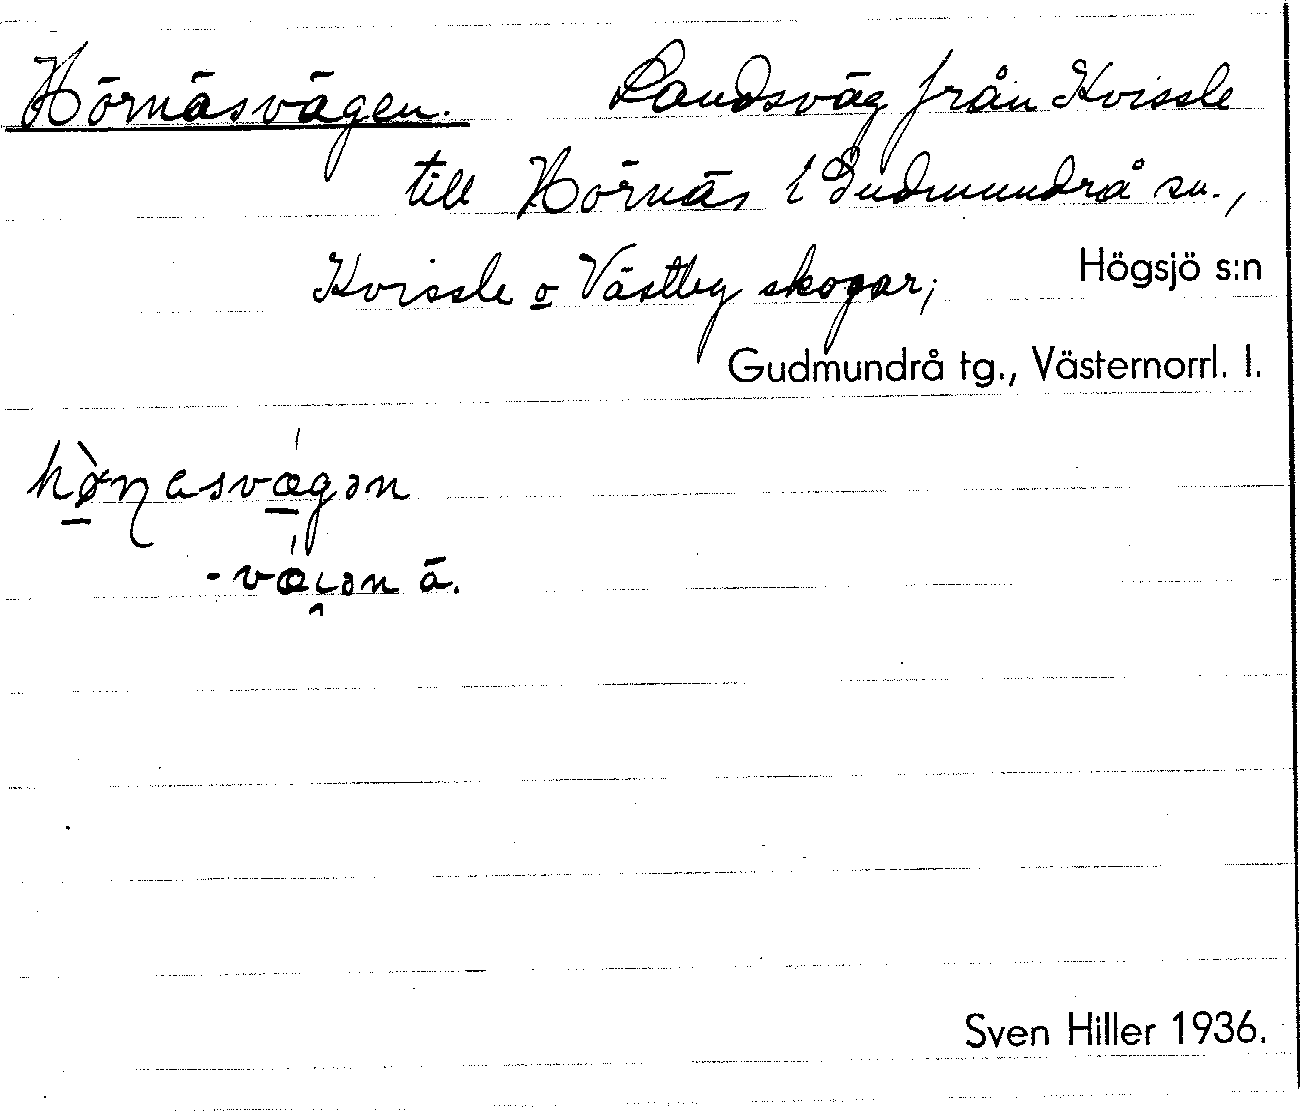 Hörnäsvägen. Landsväg från Kvissle
till Hörnäs i Gudmundrå sn.,
Kvissle o Västby skogar; Högsjö s:n
Gudmundrå tg., Västernorrl. l.
hø̀ɳasvǽgən
-vǽi̯ən ä.
Sven Hiller 1936.